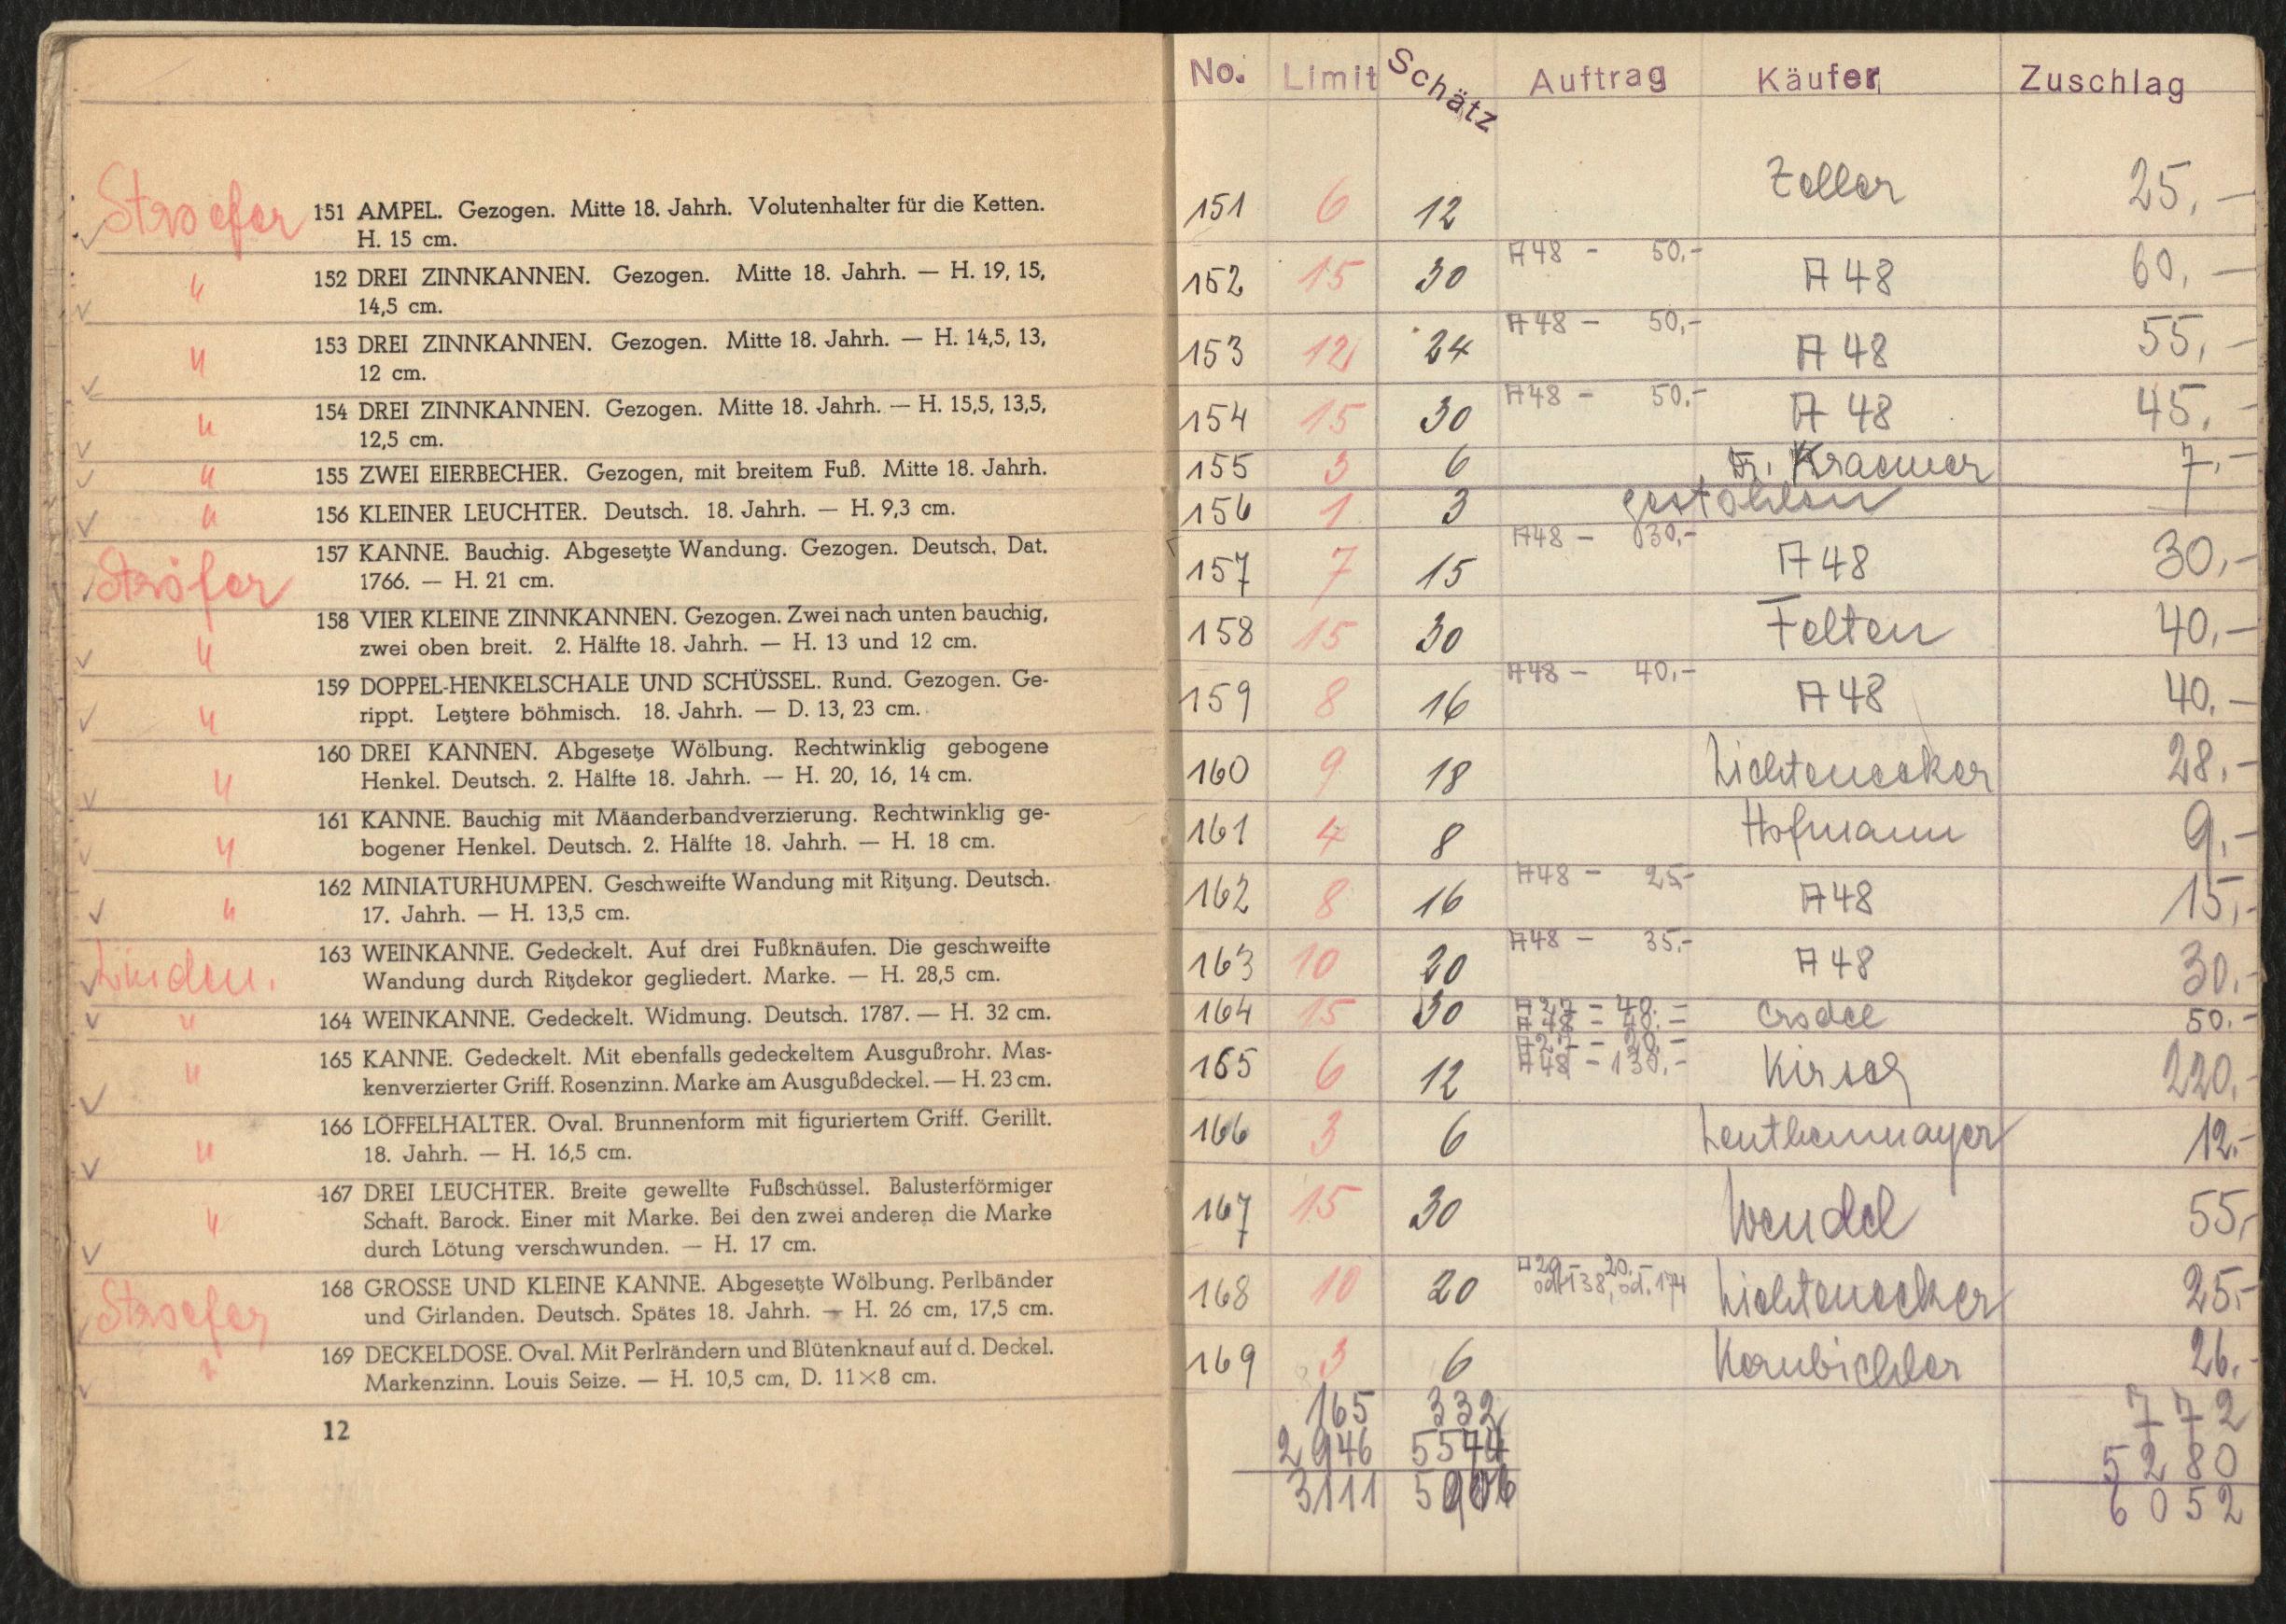 Stroefer 151 AMPEL. Gezogen. Mitte 18. Jahrh. Volutenhalter für die Ketten.
H. 15 cm.
" 152 DREI ZINNKANNEN. Gezogen. Mitte 18. Jahrh. — H. 19, 15,
14,5 cm.
" 153 DREI ZINNKANNEN. Gezogen. Mitte 18. Jahrh. — H. 14,5, 13,
12 cm.
" 154 DREI ZINNKANNEN. Gezogen. Mitte 18. Jahrh. — H. 15,5, 13,5,
12,5 cm.
" 155 ZWEI EIERBECHER. Gezogen, mit breitem Fuß. Mitte 18. Jahrh.
" 156 KLEINER LEUCHTER. Deutsch. 18. Jahrh. — H. 9,3 cm.
Ströfer 157 KANNE. Bauchig. Abgesetzte Wandung. Gezogen. Deutsch. Dat.
1766. — H. 21 cm.
" 158 VIER KLEINE ZINNKANNEN. Gezogen. Zwei nach unten bauchig,
zwei oben breit. 2. Hälfte 18. Jahrh. — H. 13 und 12 cm.
" 159 DOPPEL-HENKELSCHALE UND SCHÜSSEL. Rund. Gezogen. Ge-
rippt. Letztere böhmisch. 18. Jahrh. — D. 13, 23 cm.
" 160 DREI KANNEN. Abgesetze Wölbung. Rechtwinklig gebogene
Henkel. Deutsch. 2. Hälfte 18. Jahrh. — H. 20, 16, 14 cm.
" 161 KANNE. Bauchig mit Mäanderbandverzierung. Rechtwinklig ge-
bogener Henkel. Deutsch. 2. Hälfte 18. Jahrh. — H. 18 cm.
" 162 MINIATURHUMPEN. Geschweifte Wandung mit Ritzung. Deutsch.
17. Jahrh. — H. 13,5 cm.
Linden. 163 WEINKANNE. Gedeckelt. Auf drei Fußknäufen. Die geschweifte
Wandung durch Ritzdekor gegliedert. Marke. — H. 28,5 cm.
" 164 WEINKANNE. Gedeckelt. Widmung. Deutsch. 1787. — H. 32 cm.
" 165 KANNE. Gedeckelt. Mit ebenfalls gedeckeltem Ausgußrohr. Mas-
kenverzierter Griff. Rosenzinn. Marke am Ausgußdeckel. — H. 23 cm.
" 166 LÖFFELHALTER. Oval. Brunnenform mit figuriertem Griff. Gerillt.
18. Jahrh. — H. 16,5 cm.
" 167 DREI LEUCHTER. Breite gewellte Fußschüssel. Balusterförmiger
Schaft. Barock. Einer mit Marke. Bei den zwei anderen die Marke
durch Lötung verschwunden. — H. 17 cm.
Stroefer 168 GROSSE UND KLEINE KANNE. Abgesetzte Wölbung. Perlbänder
und Girlanden. Deutsch. Spätes 18. Jahrh. — H. 26 cm, 17,5 cm.
" 169 DECKELDOSE. Oval. Mit Perlrändern und Blütenknauf auf d. Deckel.
Markenzinn. Louis Seize. — H. 10,5 cm, D. 11×8 cm.
12
No. Limit Schätz Auftrag Käufer Zuschlag
151 6 12 Zeller 25,—
152 15 30 A 48 - 50,- A 48 60,—
153 12 24 A 48 - 50,- A 48 55,—
154 15 30 A 48 - 50,- A 48 45,-
155 3 6 Dr. Kraemer 7,-
156 1 3 gestohlen —
157 7 15 A 48 - 30,- A 48 30,-
158 15 30 Felten 40,-
159 8 16 A 48 - 40,- A 48 40,-
160 9 18 Lichtenecker 28,-
161 4 8 Hofmann 9,-
162 8 16 A 48 - 25,- A 48 15,-
163 10 20 A 48 - 35,- A 48 30,-
164 15 30 A 27 - 40.- 50.-
A 48 - 40.-
165 6 12 A 27 - 20.- Kirsch 220,-
A 48 - 130,-
166 3 6 Leuthenmayer 12,-
167 15 30 Wendel 55,-
168 10 20 A 29 - 20.- Lichtenecker 25,-
od. 138, od. 174
169 3 6 Kernbichler 26,-
165 332 772
2946 5574 5280
3111 5906 6052